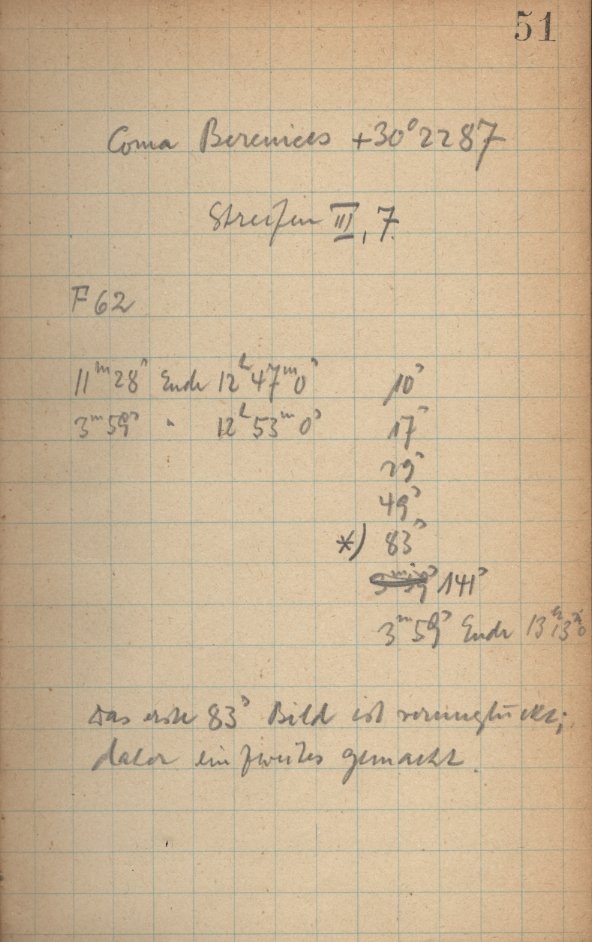 51
Coma Berenices +30°2287
Streifen III, 7.
F 62
11ᵐ28ˢ Ende 12ʰ47ᵐ0ˢ 10ˢ
3ᵐ59ˢ " 12ʰ53ᵐ0ˢ 17ˢ
29ˢ
49ˢ
*) 83ˢ
3ᵐ59ˢ 141ˢ
3ᵐ59ˢ Ende 13ʰ13ᵐ0
Das erste 83ˢ Bild ist verunglückt;
daher ein zweites gemacht.